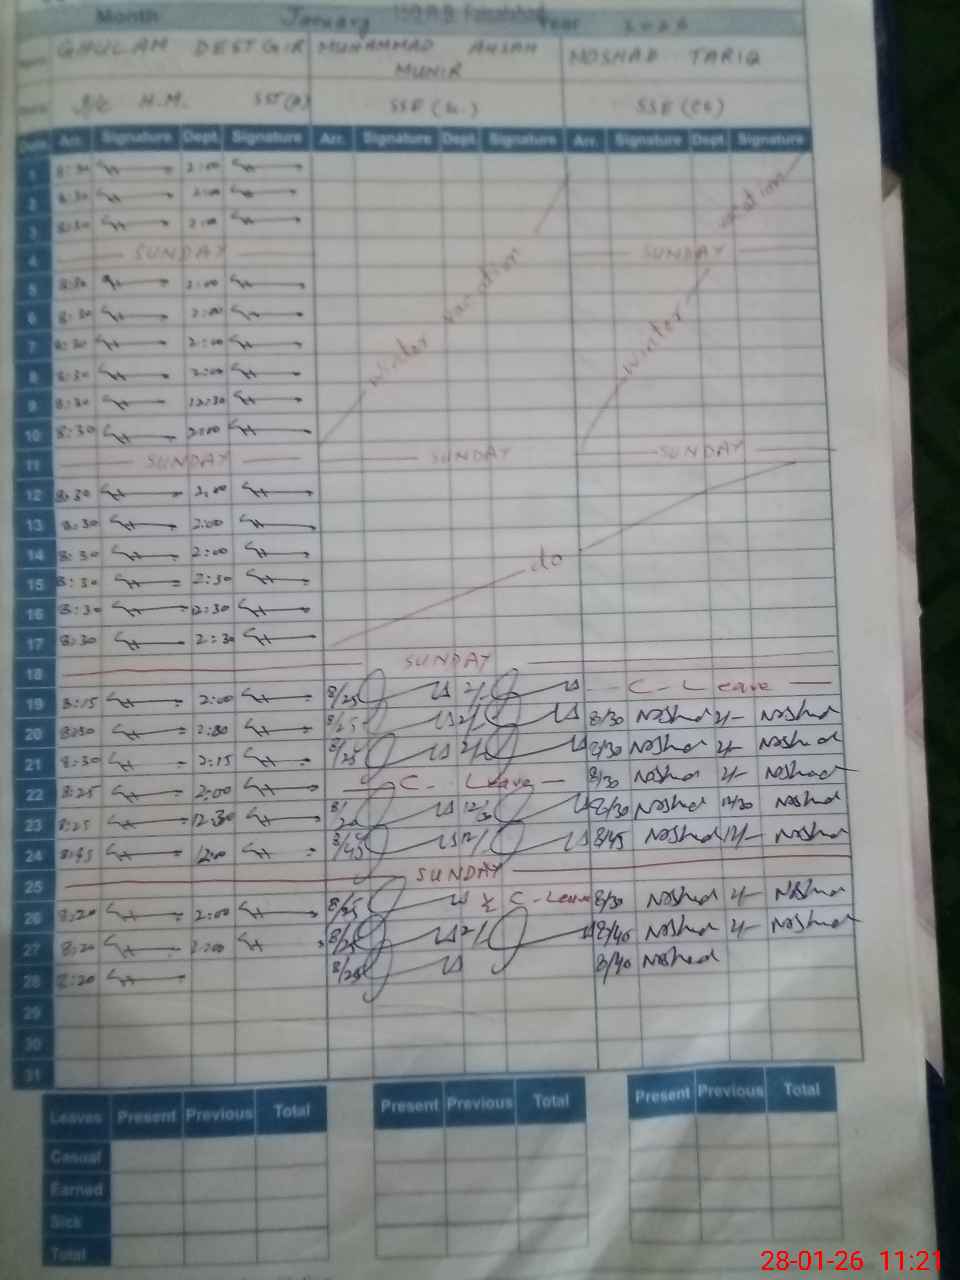 Month January Year 2026
GHULAM DESTGIR MUHAMMAD AHSAN MUNIR NOSHAD TARIQ
I/c H.M. SST(S) SSE (Sc.) SSE (CS)
Date Arr. Signature Dept. Signature Arr. Signature Dept. Signature Arr. Signature Dept. Signature
1 8:30 2:00
2 8:30 2:00 vacation
3 8:30 2:00
4 SUNDAY SUNDAY
5 8:30 2:00 vacation
6 8:30 2:00
7 8:30 2:00 winter winter
8 8:30 2:00
9 8:30 12:30
10 8:30 2:00
11 SUNDAY SUNDAY SUNDAY
12 8:30 2:00
13 8:30 2:00
14 8:30 2:00 do
15 8:30 2:30
16 8:30 12:30
17 8:30 2:30
18 SUNDAY
19 8:15 2:00 8/25 2/- C-Leave
20 8:30 8/25 2/- 8/30 Noshad 2/- Noshad
21 8:30 2:15 8/25 2/- 8/30 Noshad 2/- Noshad
22 8:25 2:00 C-Leave 8/30 Noshad 2/- Noshad
23 8:25 12:30 8/20 12/30 8/30 Noshad 12/30 Noshad
24 8:45 8/45 12/- 8/45 Noshad 12/- Noshad
25 SUNDAY
26 8:20 2:00 8/25 ½ C-Leave 8/30 Noshad 2/- Noshad
27 8:20 2:00 8/25 2/- 8/40 Noshad 2/- Noshad
28 8:20 8/25 8/40 Noshad
29
30
31
Leaves Present Previous Total Present Previous Total Present Previous Total
Casual
Earned
Sick
Total
28-01-26 11:21